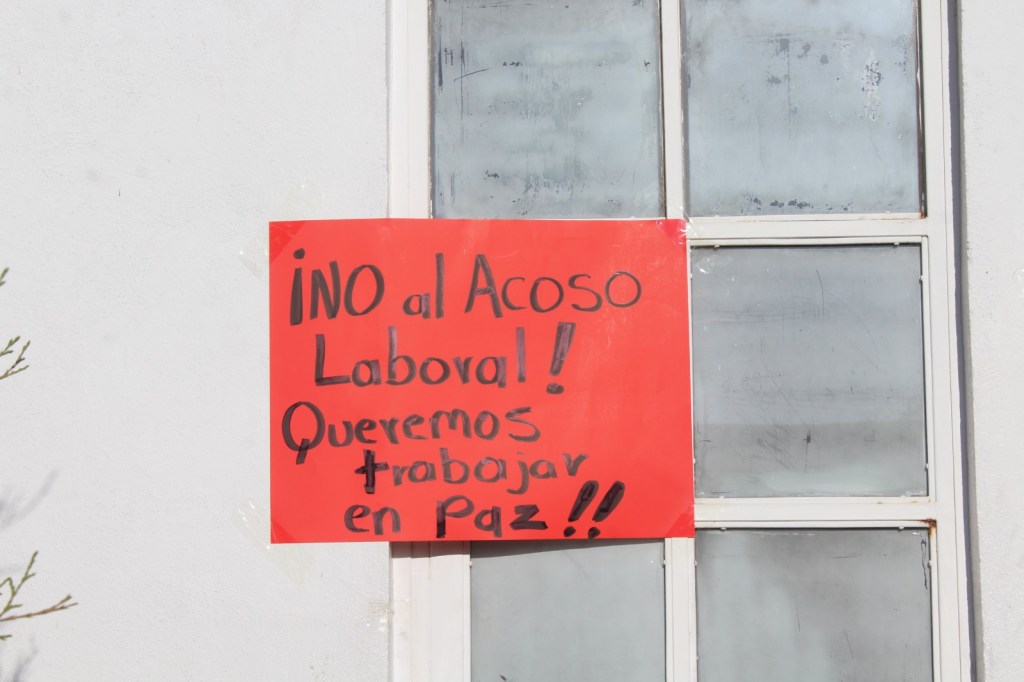 ¡NO al Acoso
Laboral!
Queremos
trabajar
en Paz!!